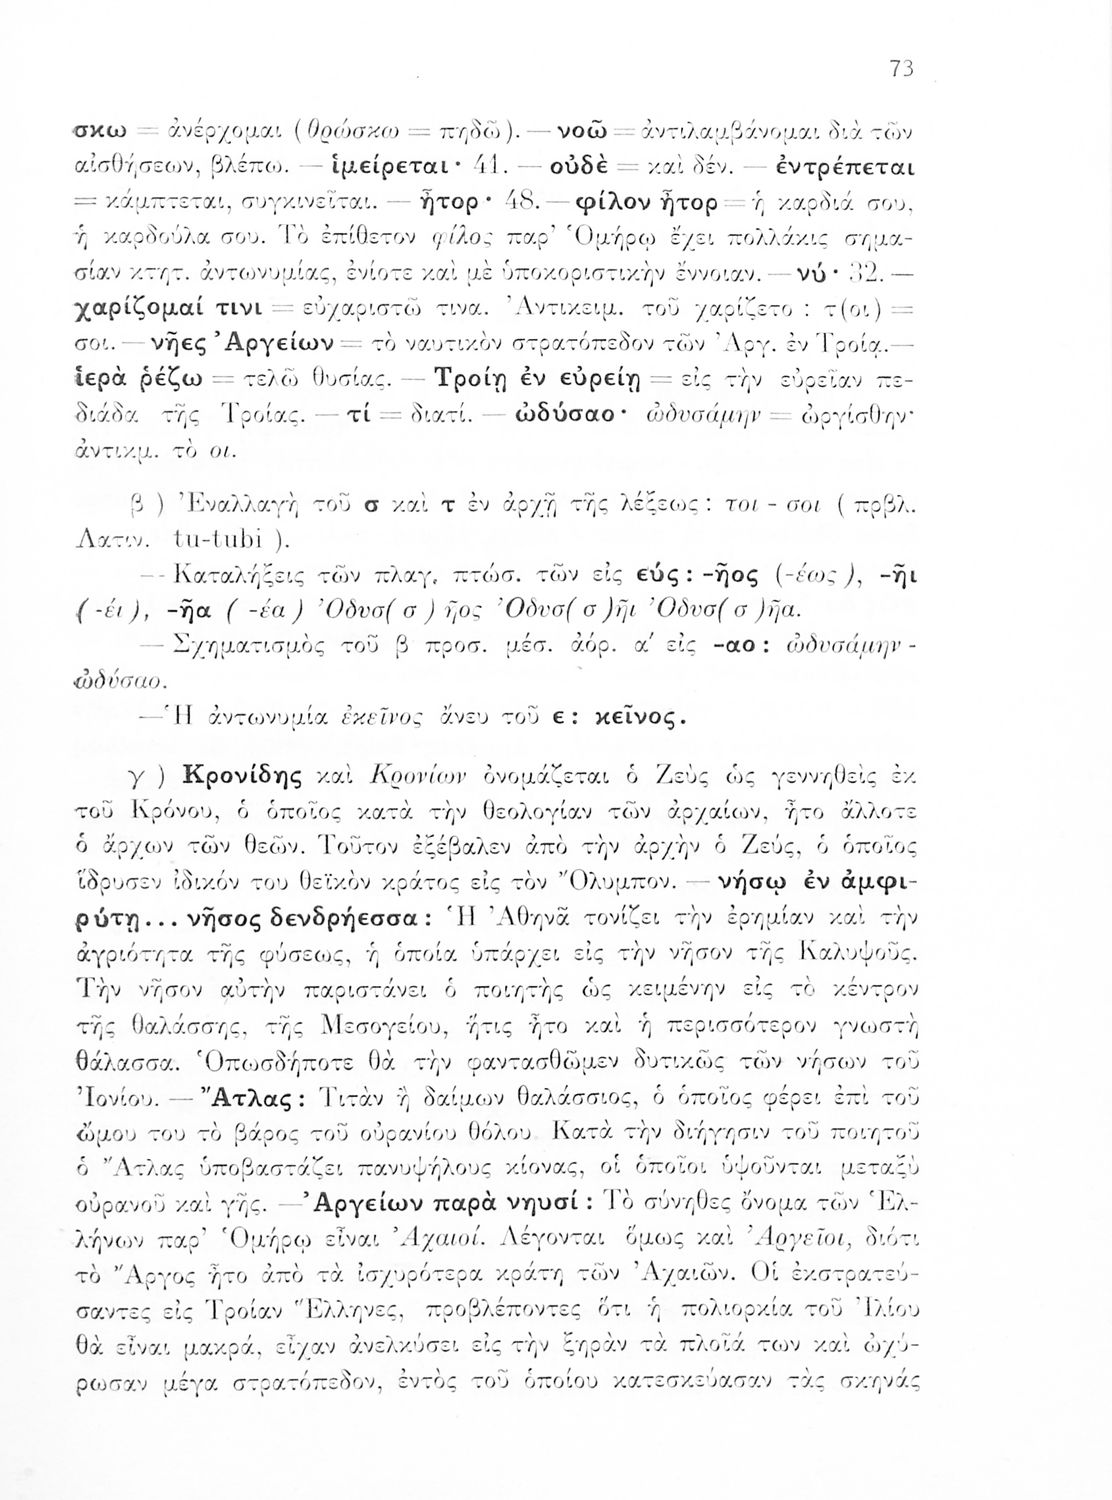 73
σκω = ἀνέρχομαι (θρώσκω = πηδῶ). — νοῶ = ἀντιλαμβάνομαι διὰ τῶν
αἰσθήσεων, βλέπω. — ἱμείρεται· 41. — οὐδὲ = καὶ δέν. — ἐντρέπεται
= κάμπτεται, συγκινεῖται. — ἦτορ· 48. — φίλον ἦτορ = ἡ καρδιά σου,
ἡ καρδούλα σου. Τὸ ἐπίθετον φίλος παρ' Ὁμήρῳ ἔχει πολλάκις σημα-
σίαν κτητ. ἀντωνυμίας, ἐνίοτε καὶ μὲ ὑποκοριστικὴν ἔννοιαν. — νύ· 32. —
χαρίζομαί τινι = εὐχαριστῶ τινα. Ἀντικειμ. τοῦ χαρίζετο : τ(οι) =
σοι. — νῆες Ἀργείων = τὸ ναυτικὸν στρατόπεδον τῶν Ἀργ. ἐν Τροίᾳ.—
ἱερὰ ῥέζω = τελῶ θυσίας. — Τροίῃ ἐν εὐρείῃ = εἰς τὴν εὐρεῖαν πε-
διάδα τῆς Τροίας. — τί = διατί. — ὠδύσαο· ὠδυσάμην = ὠργίσθην·
ἀντικμ. τὸ οι.
β ) Ἐναλλαγὴ τοῦ σ καὶ τ ἐν ἀρχῇ τῆς λέξεως : τοι - σοι ( πρβλ.
Λατιν. tu-tubi ).
— Καταλήξεις τῶν πλαγ. πτώσ. τῶν εἰς εύς : -ῆος (-έως ), -ῆι
( -έι ), -ῆα ( -έα ) Ὀδυσ( σ ) ῆος Ὀδυσ( σ )ῆι Ὀδυσ( σ )ῆα.
— Σχηματισμὸς τοῦ β προσ. μέσ. ἀόρ. α' εἰς -αο : ὠδυσάμην -
ὠδύσαο.
— Ἡ ἀντωνυμία ἐκεῖνος ἄνευ τοῦ ε : κεῖνος.
γ ) Κρονίδης καὶ Κρονίων ὀνομάζεται ὁ Ζεὺς ὡς γεννηθεὶς ἐκ
τοῦ Κρόνου, ὁ ὁποῖος κατὰ τὴν θεολογίαν τῶν ἀρχαίων, ἦτο ἄλλοτε
ὁ ἄρχων τῶν θεῶν. Τοῦτον ἐξέβαλεν ἀπὸ τὴν ἀρχὴν ὁ Ζεύς, ὁ ὁποῖος
ἵδρυσεν ἰδικόν του θεϊκὸν κράτος εἰς τὸν Ὄλυμπον. — νήσῳ ἐν ἀμφι-
ρύτῃ... νῆσος δενδρήεσσα : Ἡ Ἀθηνᾶ τονίζει τὴν ἐρημίαν καὶ τὴν
ἀγριότητα τῆς φύσεως, ἡ ὁποία ὑπάρχει εἰς τὴν νῆσον τῆς Καλυψοῦς.
Τὴν νῆσον αὐτὴν παριστάνει ὁ ποιητὴς ὡς κειμένην εἰς τὸ κέντρον
τῆς θαλάσσης, τῆς Μεσογείου, ἥτις ἦτο καὶ ἡ περισσότερον γνωστὴ
θάλασσα. Ὁπωσδήποτε θὰ τὴν φαντασθῶμεν δυτικῶς τῶν νήσων τοῦ
Ἰονίου. — Ἄτλας : Τιτὰν ἢ δαίμων θαλάσσιος, ὁ ὁποῖος φέρει ἐπὶ τοῦ
ὤμου του τὸ βάρος τοῦ οὐρανίου θόλου. Κατὰ τὴν διήγησιν τοῦ ποιητοῦ
ὁ Ἄτλας ὑποβαστάζει πανυψήλους κίονας, οἱ ὁποῖοι ὑψοῦνται μεταξὺ
οὐρανοῦ καὶ γῆς. — Ἀργείων παρὰ νηυσί : Τὸ σύνηθες ὄνομα τῶν Ἑλ-
λήνων παρ' Ὁμήρῳ εἶναι Ἀχαιοί. Λέγονται ὅμως καὶ Ἀργεῖοι, διότι
τὸ Ἄργος ἦτο ἀπὸ τὰ ἰσχυρότερα κράτη τῶν Ἀχαιῶν. Οἱ ἐκστρατεύ-
σαντες εἰς Τροίαν Ἕλληνες, προβλέποντες ὅτι ἡ πολιορκία τοῦ Ἰλίου
θὰ εἶναι μακρά, εἶχαν ἀνελκύσει εἰς τὴν ξηρὰν τὰ πλοῖά των καὶ ὠχύ-
ρωσαν μέγα στρατόπεδον, ἐντὸς τοῦ ὁποίου κατεσκεύασαν τὰς σκηνάς